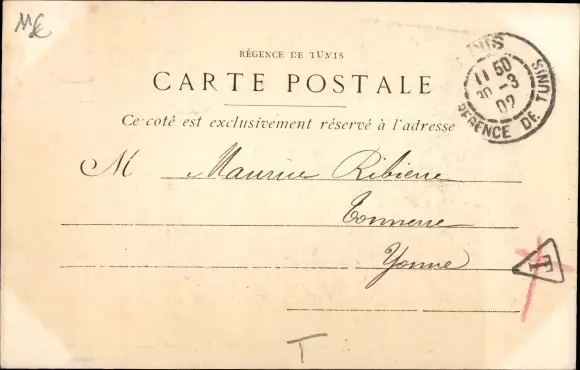 RÉGENCE DE TUNIS
CARTE POSTALE
Ce côté est exclusivement réservé à l'adresse
M Maurice Ribierre
Tonnerre
Yonne
TUNIS
11 50
30 -3
02
REGENCE DE TUNIS
T
T